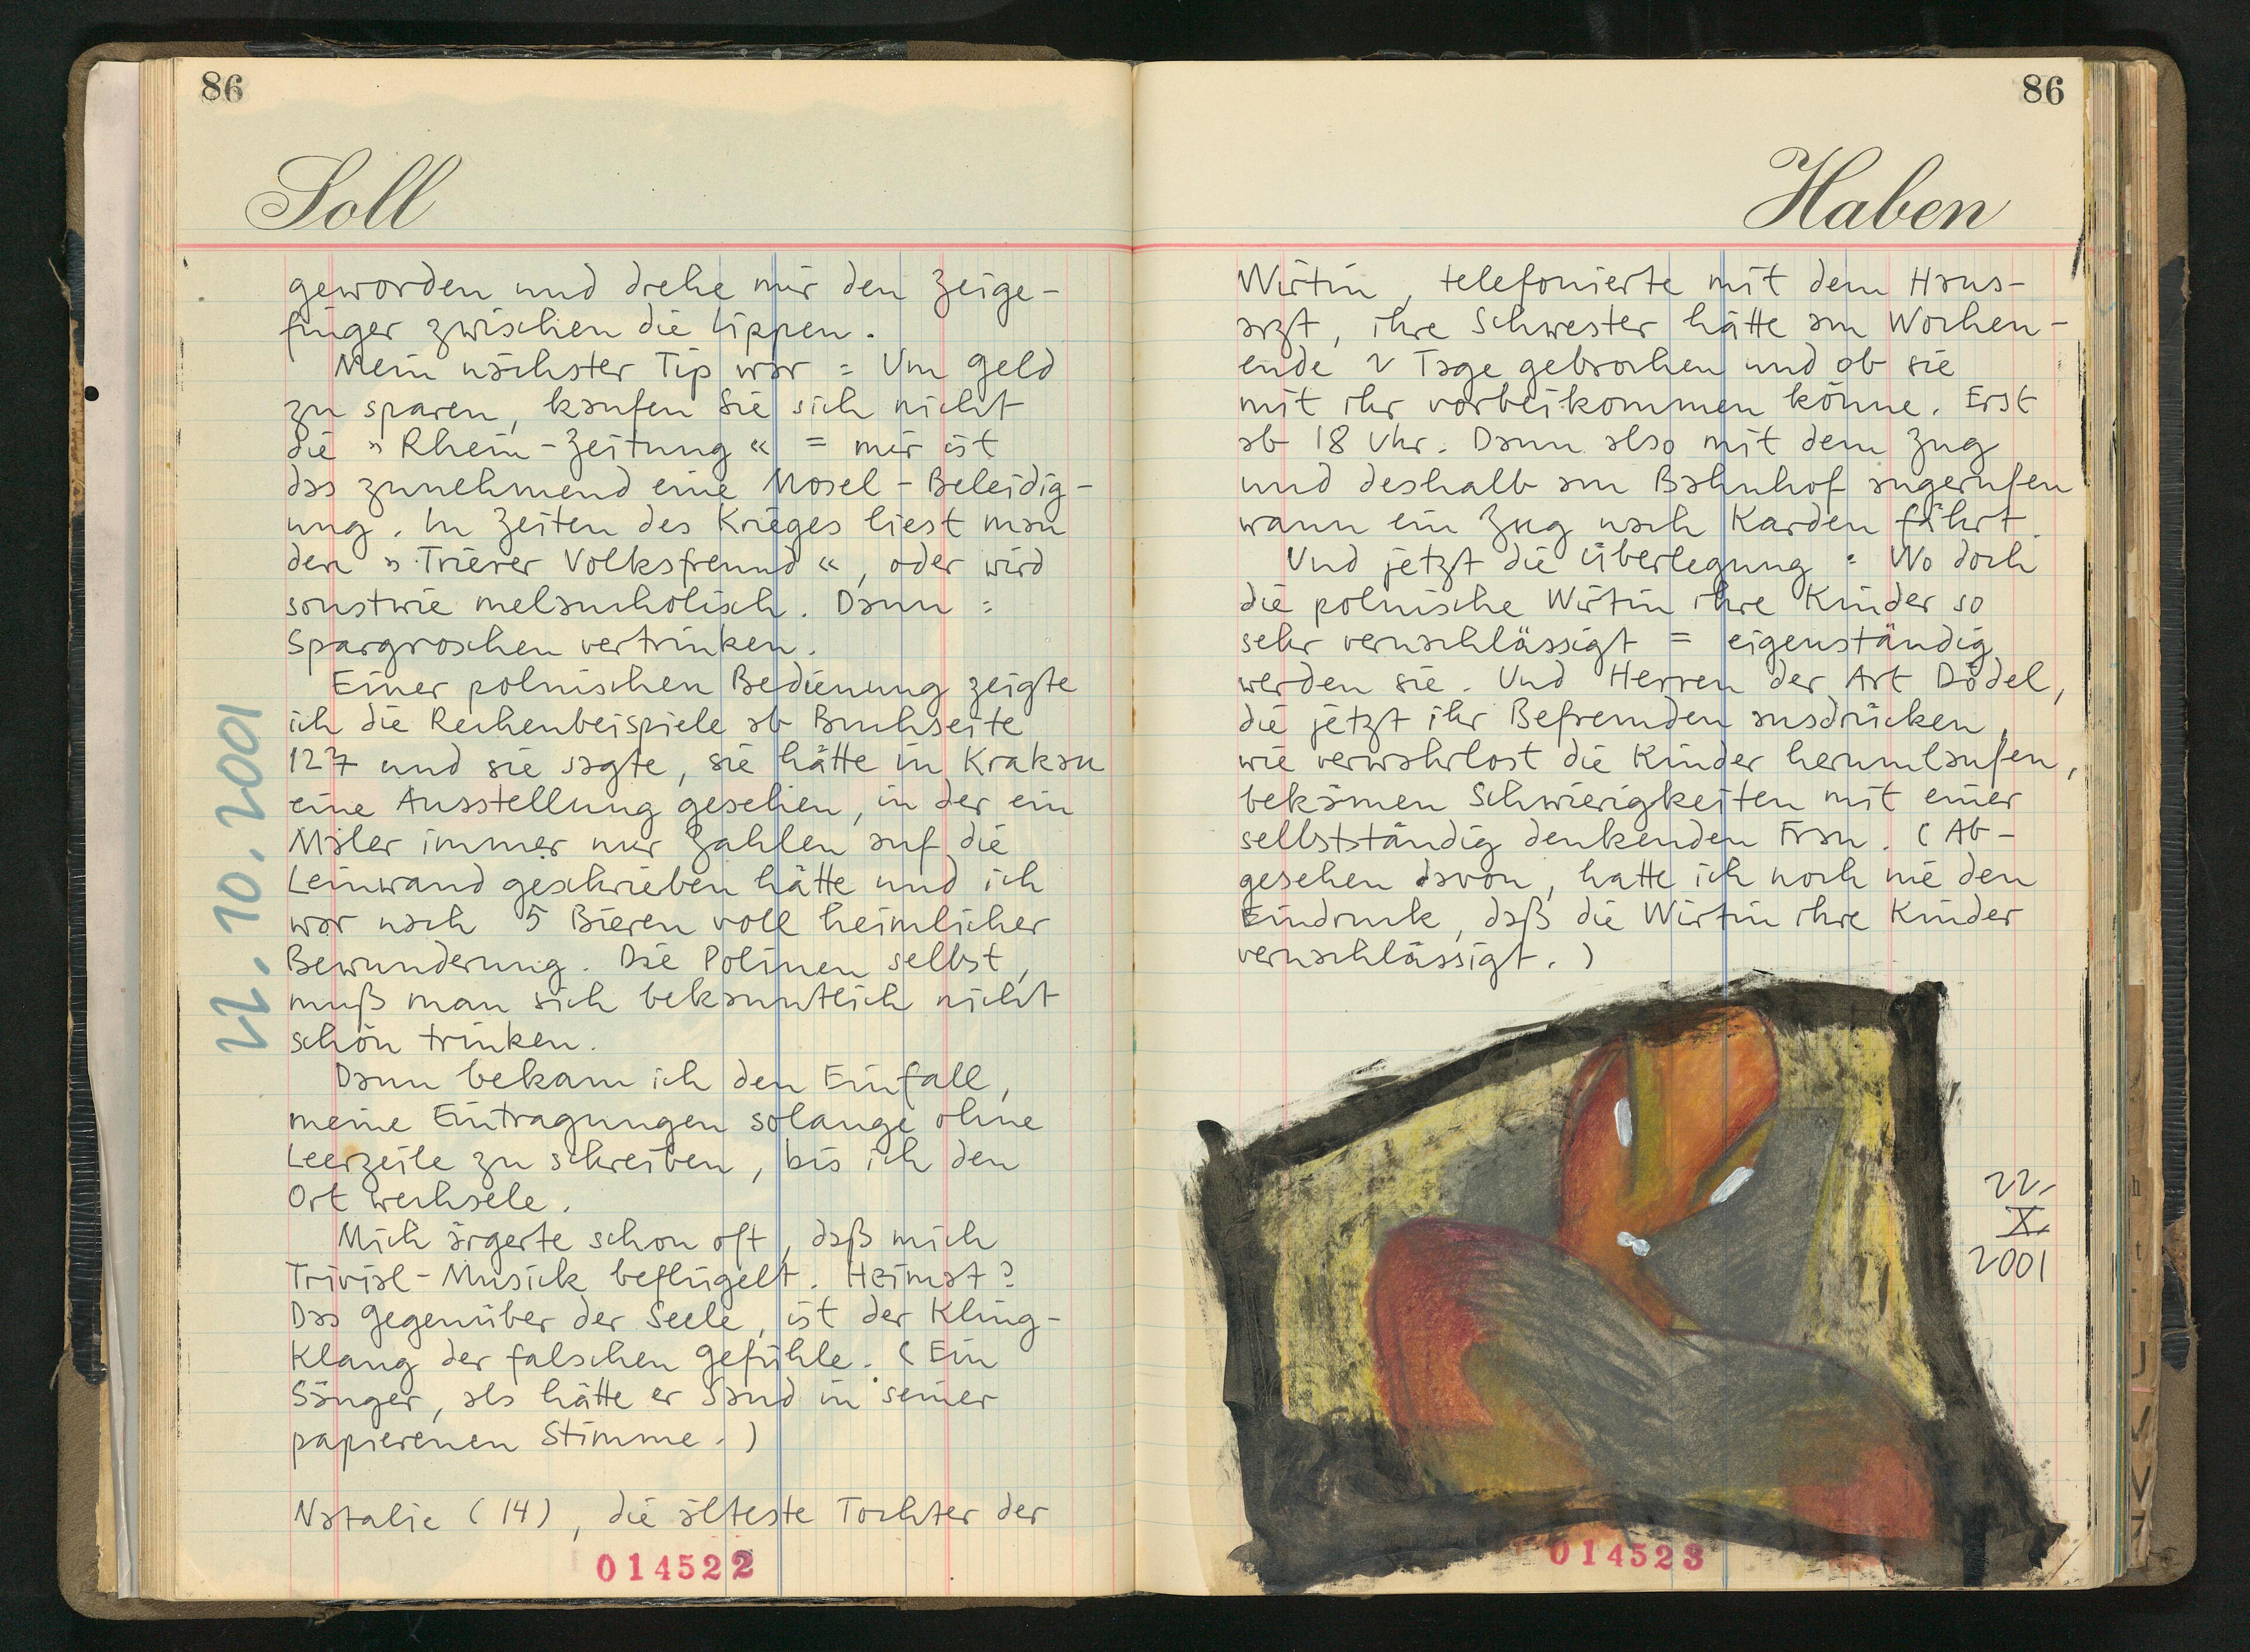 86
Soll
geworden und drehe mir den Zeige-
finger zwischen die Lippen.
Mein nächster Tip war = Um Geld
zu sparen, kaufen Sie sich nicht
die »Rhein-Zeitung« = mir ist
das zunehmend eine Mosel-Beleidig-
ung. In Zeiten des Krieges liest man
den »Trierer Volksfreund«, oder wird
sonstwie melancholisch. Dann =
Spargroschen vertrinken.
Einer polnischen Bedienung zeigte
ich die Rechenbeispiele ab Buchseite
127 und sie sagte, sie hätte in Krakau
eine Ausstellung gesehen, in der ein
Maler immer nur Zahlen auf die
Leinwand geschrieben hätte und ich
war nach 5 Bieren voll heimlicher
Bewunderung. Die Polinnen selbst,
muß man sich bekanntlich nicht
schön trinken.
Dann bekam ich den Einfall,
meine Eintragungen solange ohne
Leerzeile zu schreiben, bis ich den
Ort wechsele.
Mich ärgerte schon oft, daß mich
Trivial-Musick beflügelt. Heimat?
Das Gegenüber der Seele, ist der Kling-
Klang der falschen Gefühle. (Ein
Sänger, als hätte er Sand in seiner
papierenen Stimme.)
Natalie (14), die älteste Tochter der
22.10.2001
014522
86
Haben
Wirtin, telefonierte mit dem Haus-
arzt, ihre Schwester hätte am Wochen-
ende 2 Tage gebrochen und ob sie
mit ihr vorbeikommen könne. Erst
ab 18 Uhr. Dann also mit dem Zug
und deshalb am Bahnhof angerufen
wann ein Zug nach Karden fährt.
Und jetzt die Überlegung = Wo doch
die polnische Wirtin ihre Kinder so
sehr vernachlässigt = eigenständig
werden sie. Und Herren der Art Dödel,
die jetzt ihr Befremden ausdrücken,
wie verwahrlost die Kinder herumlaufen,
bekämen Schwierigkeiten mit einer
selbstständig denkenden Frau. (Ab-
gesehen davon, hatte ich noch nie den
Eindruck, daß die Wirtin ihre Kinder
vernachlässigt.)
22.
X.
2001
014523